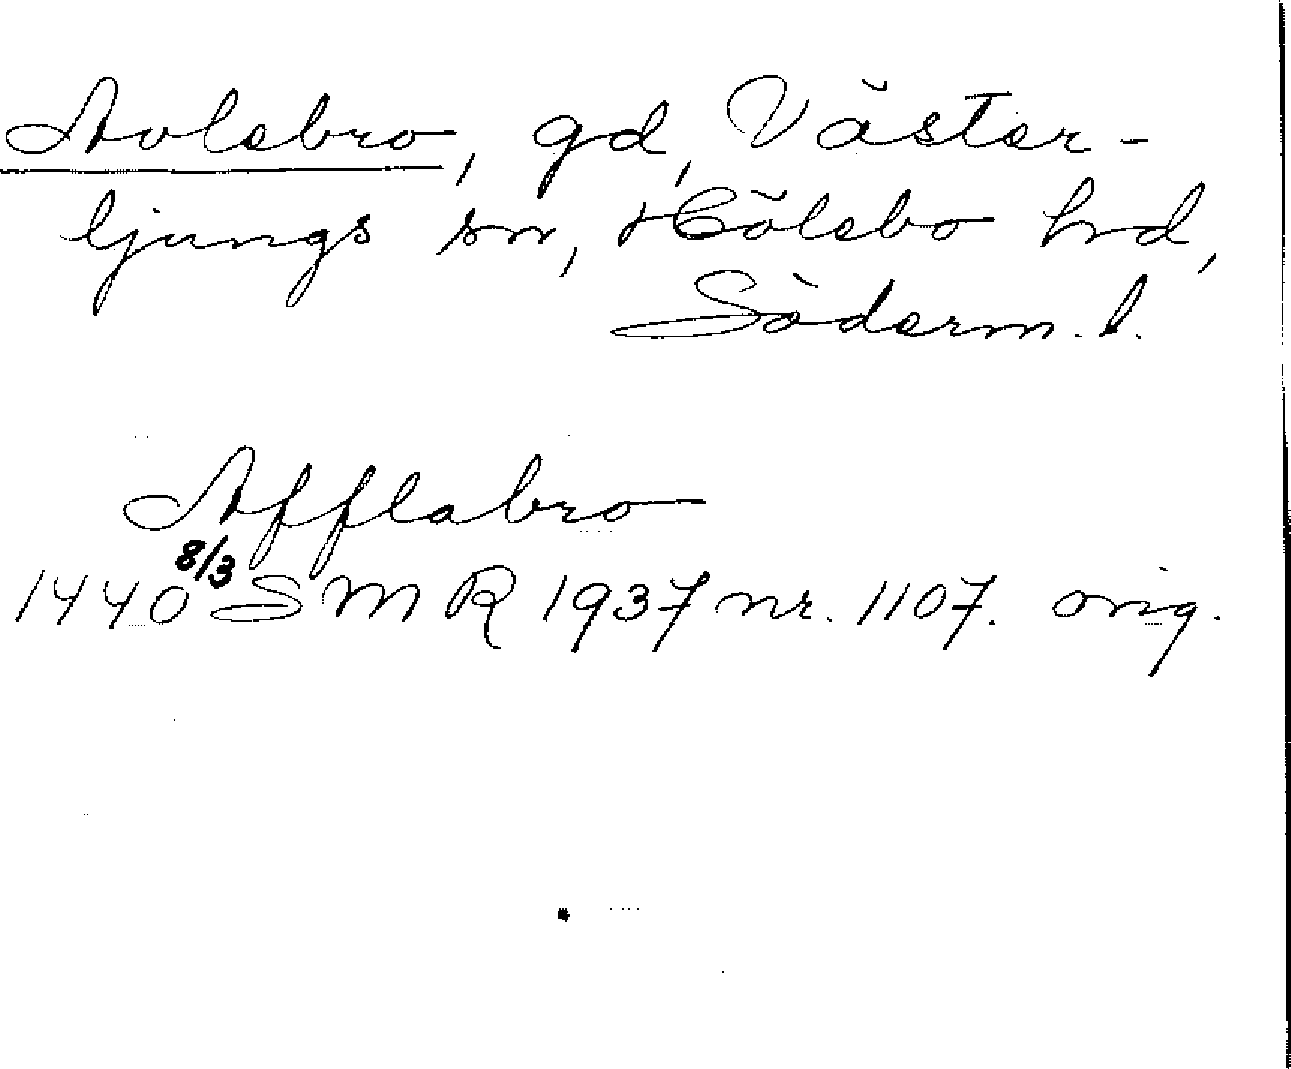 Avlebro, gd, Väster-
ljungs sn, Hölebo hrd,
Söderm. l.
Afflabro
1440 8/3 SMR 1937 nr. 1107. orig.